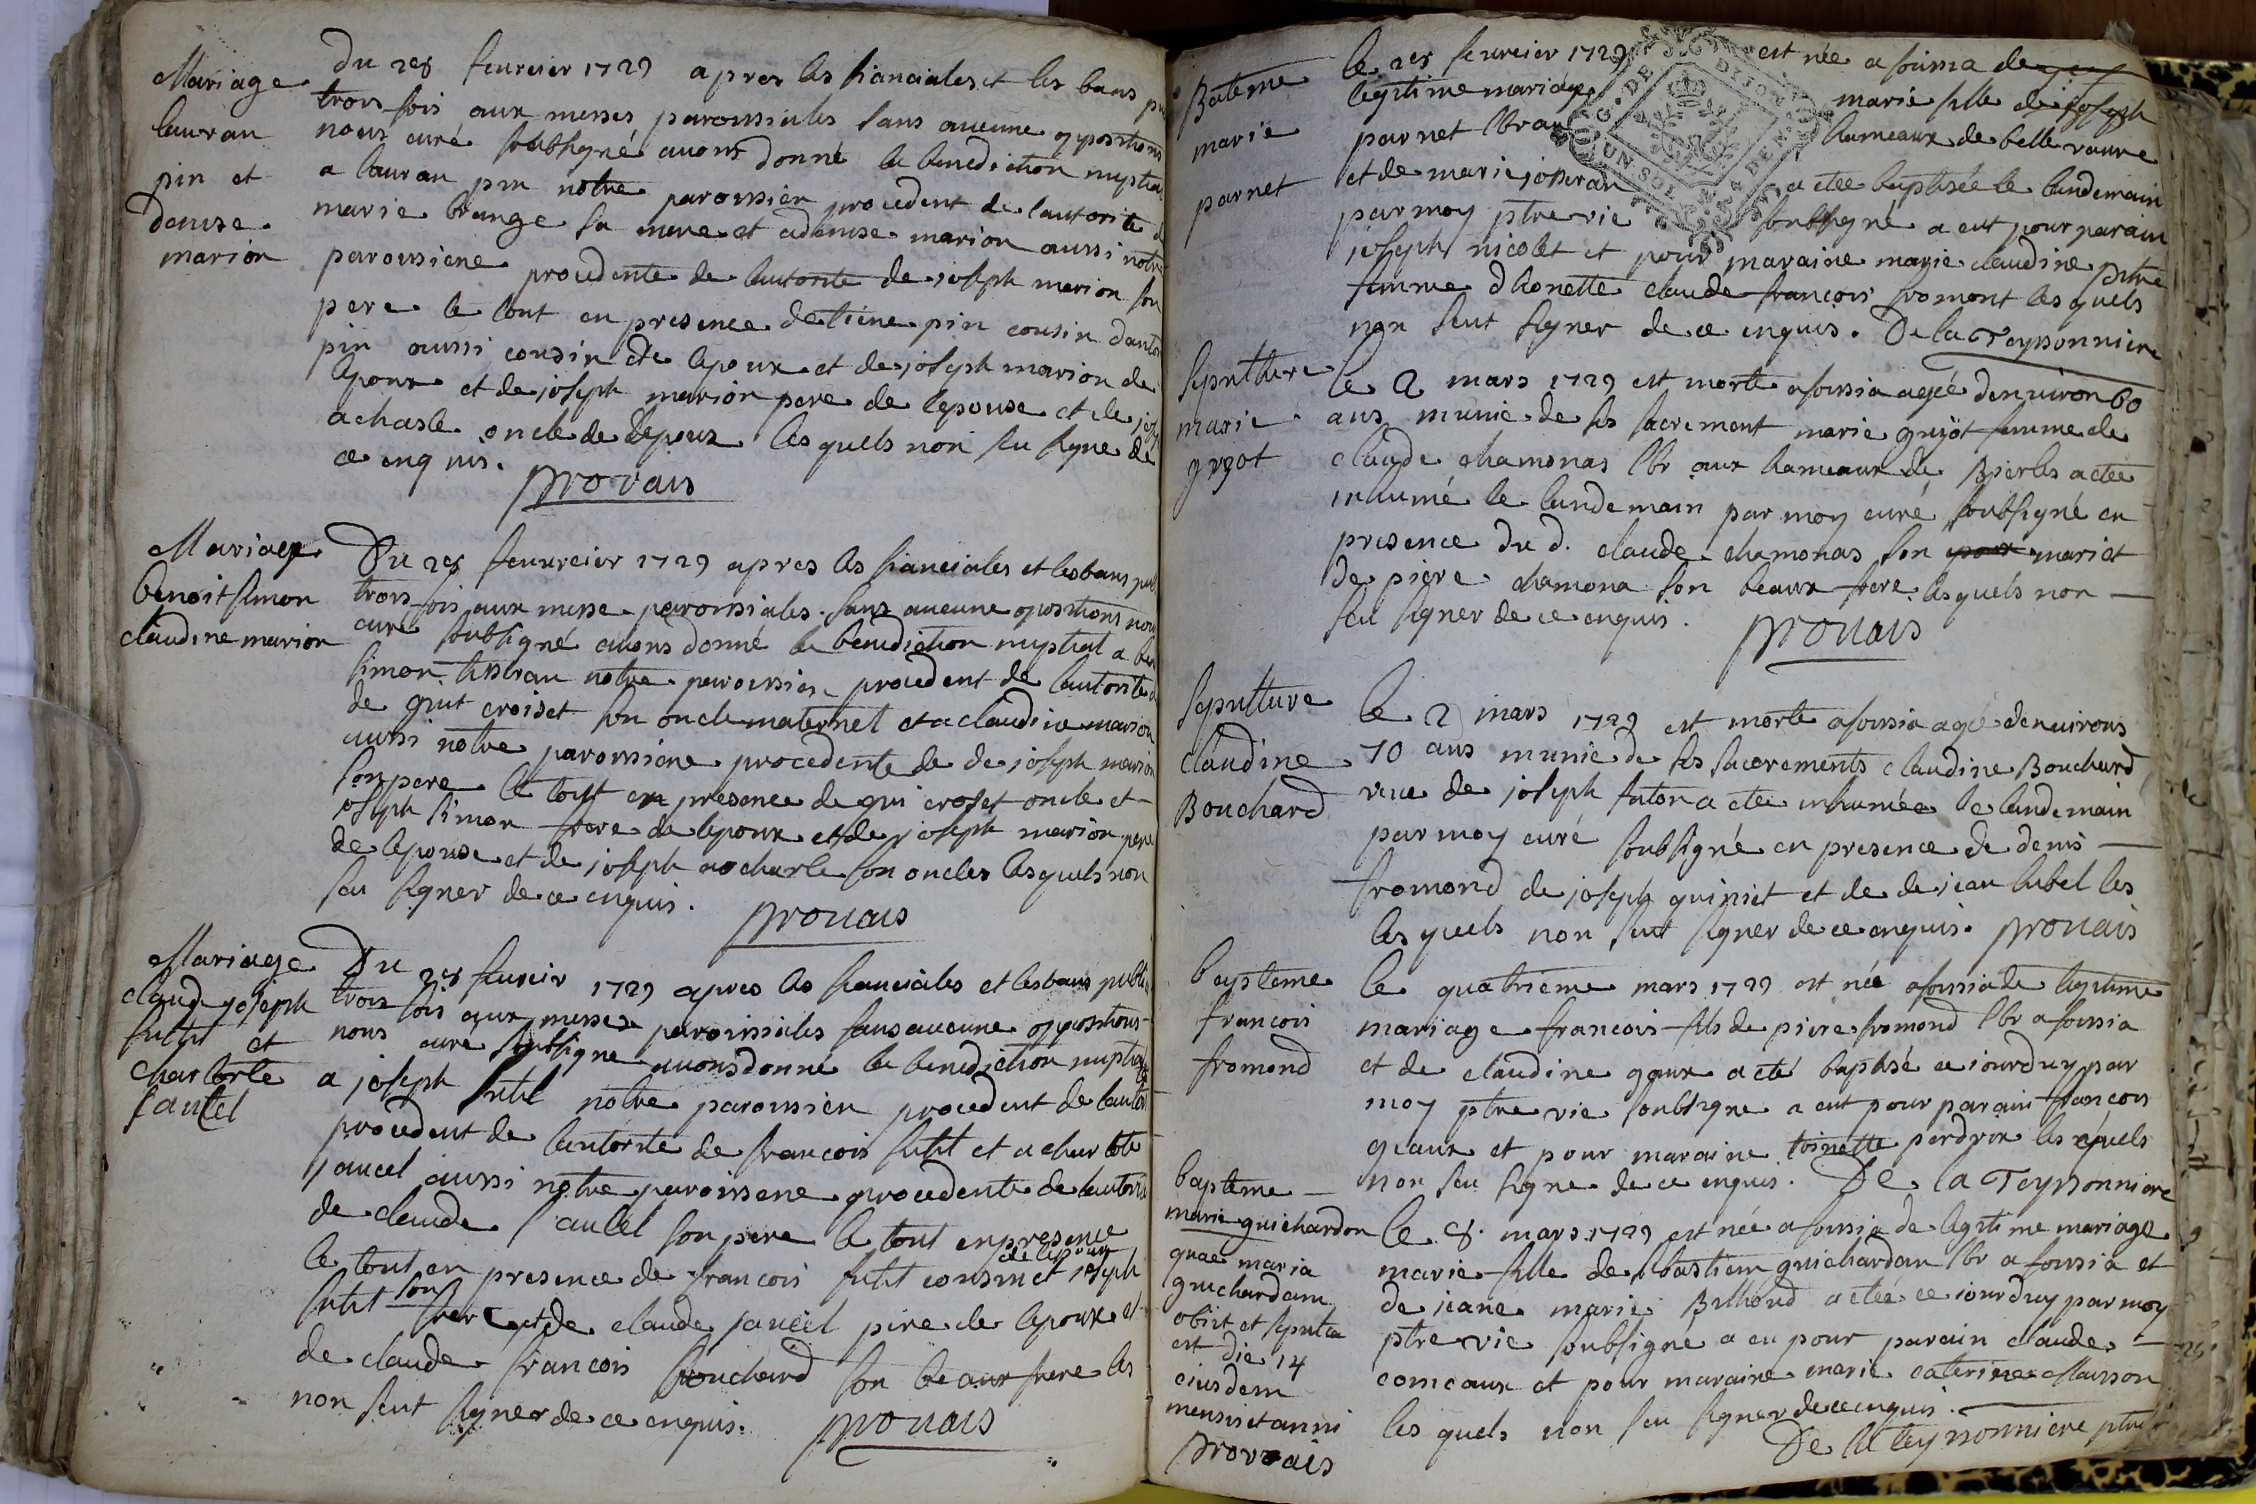 Mariage
lauran
pin et
denise
marion
Du 28 feuvrier 1729 apres les fianciales et les bans
trois fois aux messes paroissiales sans aucune oppositions
nous curé soubsigné avons donné la benediction nuptia
a lauran pin notre paroissien procedent de l'autorite
marie brange sa mere et a denise marion aussi notre
paroissiene procedente de lautorite de joseph marion son
pere le tout en presence detiene pin cousin danto
pin aussi cousin de lepoux et de joseph marion de
lepoux et de joseph marion pere de lepouse et de
achasle oncle de lepoux les quels non su signe de
ce enquis.
provais
Mariage
benoit simon
claudine marion
Du 28 feuvreier 1729 apres les fianciales et les bans pub
trois fois aux messe paroissiales sans aucune opositions nous
curé soubsigné avons donné la benediction nuptial a ben
simon notre paroissien procedent de lautorite
de croiset son oncle maternel et a claudine marion
aussi notre paroissiene procedente de de joseph marion
son pere le tout en presence de gui croset oncle et
joseph simon frere de lepoux et de joseph marion pere
de lepouse et de joseph acharle son oncles les quels non
su signer de ce enquis.
provais
Mariage
claude joseph
futil et
charlotte
jantel
Du 28 feuvrier 1729 apres les fianciales et les bans publi
trois fois aux messes paroissiales sans aucune oppositions
nous curé soubsigne avons donné la benediction nuptial
a joseph futil notre paroissien procedent de lautor
procedent de lautorite de francois futil et a charlote
jancel aussi notre paroissene procedente de lautorite
de claude jantel son pere le tout en presence
le tout en presence de francois futil cousin de lepoux et joseph
futil son frere et de claude jancel pere de lepoux et
de claude francois bouchard son beaux frere les
non seut signer de ce enquis.
provais
Bateme
marie
parnet
le 28 feuvrier 1729 est née a foissia de
legitime mariage marie fille de joseph
parnet lbr au hameaux de belle vavre
et de marie josseran a etee baptisée le landemain
par moy ptre vic soubsigné a eut pour parain
joseph nicolet et pour maraine marie claudine pitre
femme dhonette claude francois fromont les quels
non seut signer de ce enquis. De la Teyssonniere
G. DE DIJON
UN. SOL DEN.
sepulture
marie
guyot
le 2 mars 1729 est morte a foissia agée denviron 60
ans munie de ses sacrement marie guyot femme de
claude chamonas lbr aux hameaux de Bierles a etee
inhumé le landemain par moy curé soubsigné en
presence du d. claude chamonas son mari et
de piere chamona son beaux frere les quels non
seu signer de ce enquis.
provais
sepulture
claudine
Bouchard
le 2 mars 1729 est morte a foissia agé denvirons
70 ans munie de ses sacrements claudine Bouchard
veue de joseph futon a etee inhumée le landemain
par moy curé soubsigné en presence de denis
fromond de joseph guinet et de de jean lubel les
les quels non seut signer de ce enquis. provais
bapteme
francois
fromond
le quatrieme mars 1729 est née a foissia de legitime
mariage francois fils de piere fromond lbr a foissia
et de claudine gaux a eté baptisé ce jourduy par
moy ptre vic soubsigne a eut pour parain francois
gaux et pour maraine toinette perdrix les quels
non seu signe de ce enquis. De la Teyssonniere
bapteme
marie guichardon
quae maria
guichardam
obiit et sepulta
est die 14
eiusdem
mensis et anni
provais
le 8. mars 1729 est née a foissia de legitime mariage
marie fille de sbastiem guichardan lbr a foissia et
de jeane marie Billioud a etée ce jourduy par moy
ptre vic soubsigne a eu pour parain claude
comeaux et pour maraine marie caterine Maisson
les quels non seu signer de ce enquis.
De la teyssonniere ptre